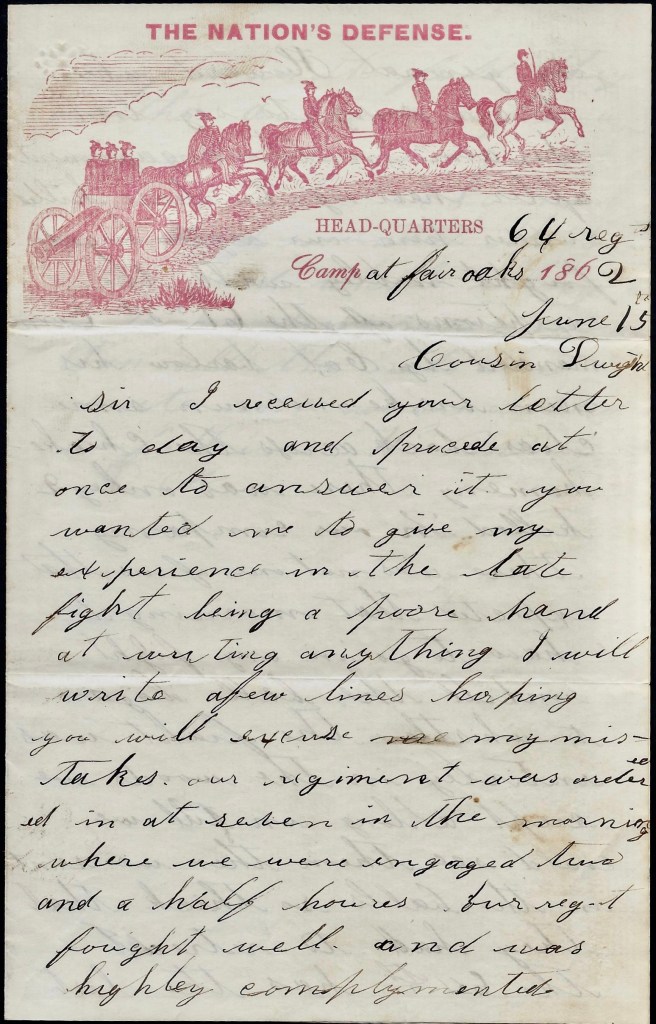 THE NATION'S DEFENSE.
HEAD-QUARTERS 64 reg
Camp at fair oaks 1862
June 15
Cousin Dwight
sir I received your letter
to day and procede at
once to answer it. you
wanted me to give my
experience in the late
fight being a poore hand
at writing anything I will
write afew lines hoping
you will excuse my mis-
takes. our regiment was order
ed in at seven in the morning
where we were engaged two
and a half houres our reg-t
fought well. and was
highley complymented